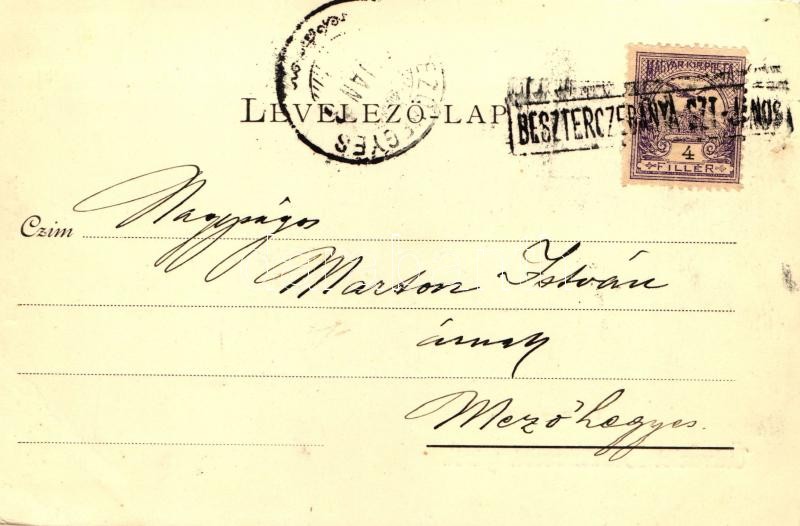 MAGYAR KIR. POSTA
LEVELEZŐ-LAP
BESZTERCZEBÁNYA SZT-JÁNOS
4
FILLÉR
JAN
Czim
Nagyságos
Marton István
úrnak
Mezőhegyes.